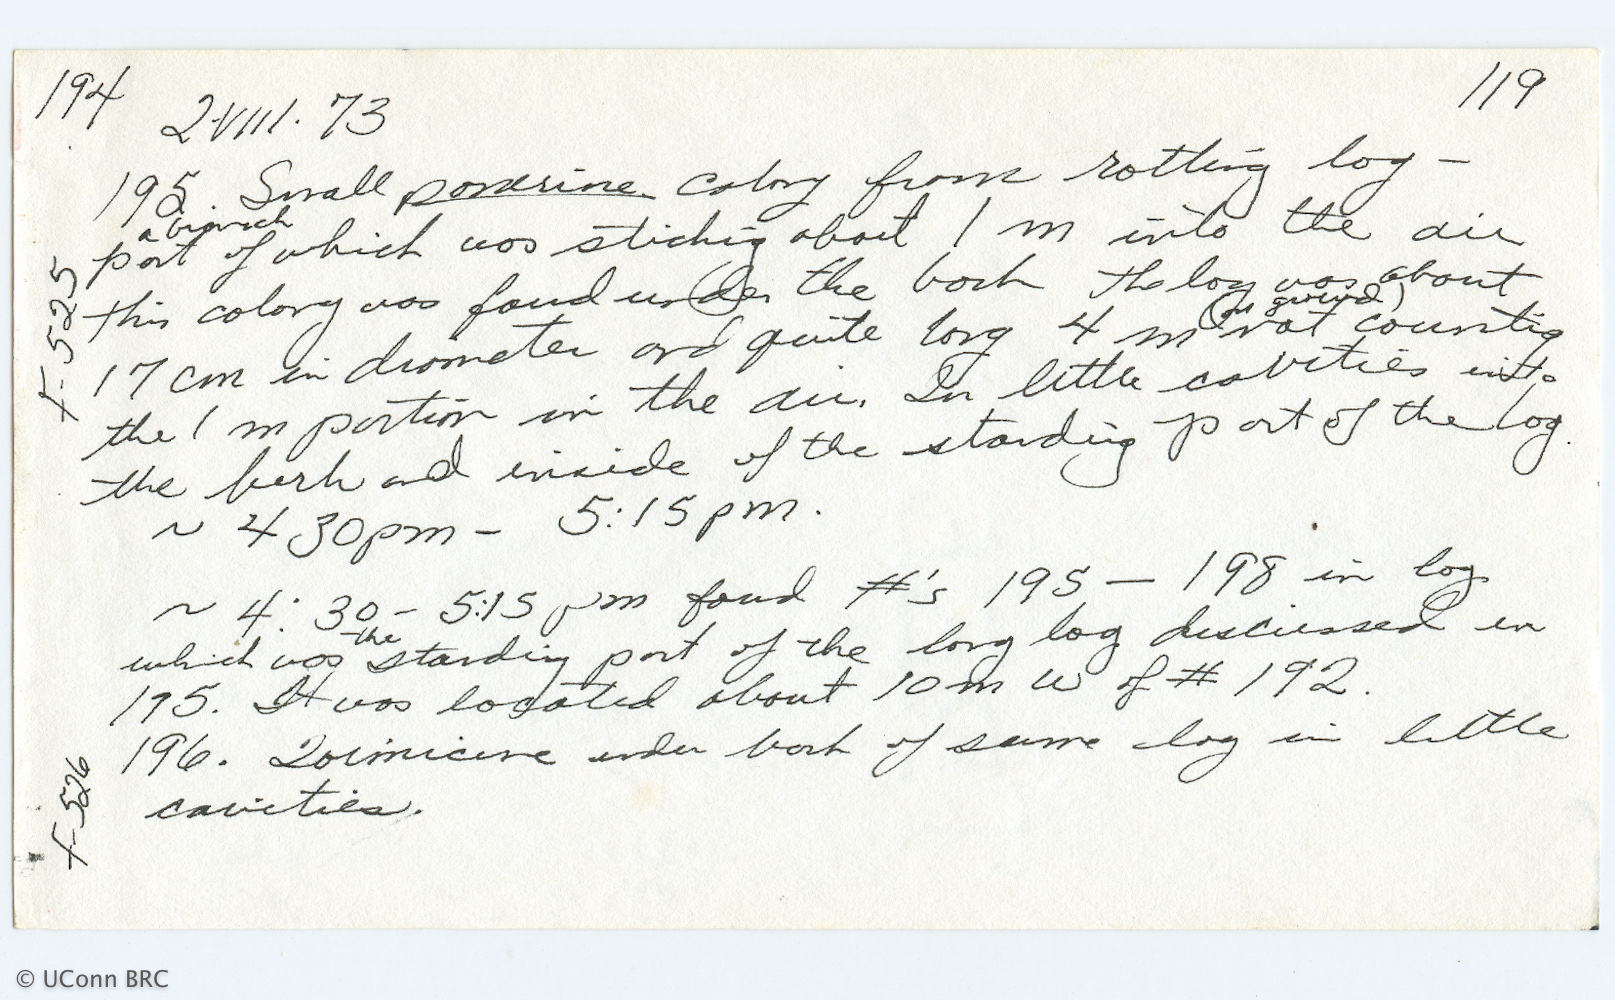 194
119
2.VIII.73
195. Small ponerine colony from rotting log —
a branch
part of which was sticking about 1 m into the air
this colony was found under the bark The log was about
(on ground)
17 cm in diameter and quite long 4 m not counting
the 1 m portion in the air. In little cavities into
the bark and inside of the standing part of the log.
~ 4 30pm - 5:15pm.
~ 4:30 - 5:15 pm found #'s 195 — 198 in log
which was the standing part of the long log discussed in
195. It was located about 10 m W of # 192.
196. Dorimicine under bark of same log in little
cavities.
F. 525
F-526
© UConn BRC